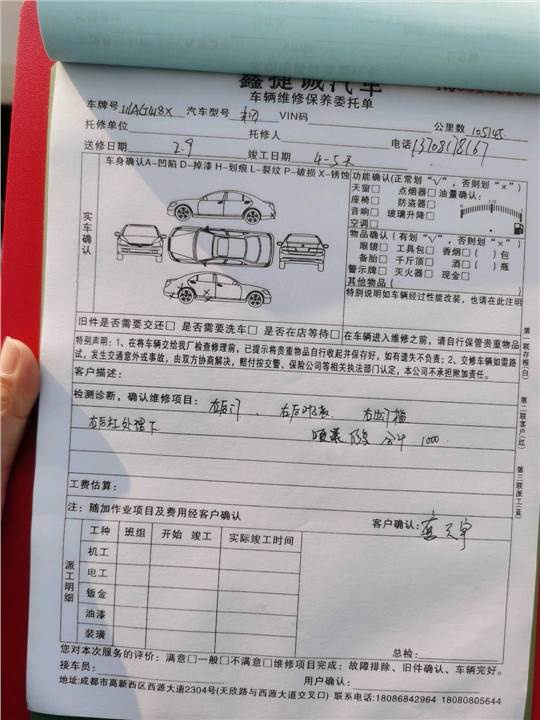 鑫捷诚汽车
车辆维修保养委托单
车牌号 汽车型号 VIN码 公里数 105145
托修单位 托修人 电话 13708178167
送修日期 2.9 竣工日期 4-5天
车身确认A-凹陷 D-掉漆 H-划痕 L-裂纹 P-破损 X-锈蚀
实车确认
功能确认(正常划“√”,否则划“×”)
天窗□ 点烟器□ 油量确认:
座椅□ 防盗器□
音响□ 玻璃升降□
空调□
物品确认(有划“√”,否则划“×”)
眼镜□ 工具包□ 香烟□( )包
备胎□ 千斤顶□ 酒□( )瓶
警示牌□ 灭火器□ 现金□
其他物品( )
特别说明如车辆经过性能改装,也请在此注明
旧件是否需要交还□ 是否需要洗车□ 是否在店等待□
在车辆进入维修之前,请自行保管贵重物品
特别声明:1、在将车辆交给我厂检查修理前,已提示将贵重物品自行收起并保存好,如有遗失不负责;2、交修车辆如需路
试,发生交通意外或事故,由双方协商解决,赔付按交警、保险公司等相关执法部门认定,本公司不承担附加责任。
客户描述:
检测诊断,确认维修项目: 右后门
1000
工费估算:
注:随加作业项目及费用经客户确认
客户确认:
派工明细
工种 班组 开始 竣工 实际竣工时间
机工
电工
钣金
油漆
装璜
总检:
第一联存根(白)
第二联客户(红)
第三联派工(蓝)
您对本次服务的评价:满意□一般□不满意□维修项目完成:故障排除、旧件确认、车辆完好。
接车员: 用户确认:
地址:成都市高新西区西源大道2304号(天欣路与西源大道交叉口) 联系电话:18086842964 18080805644